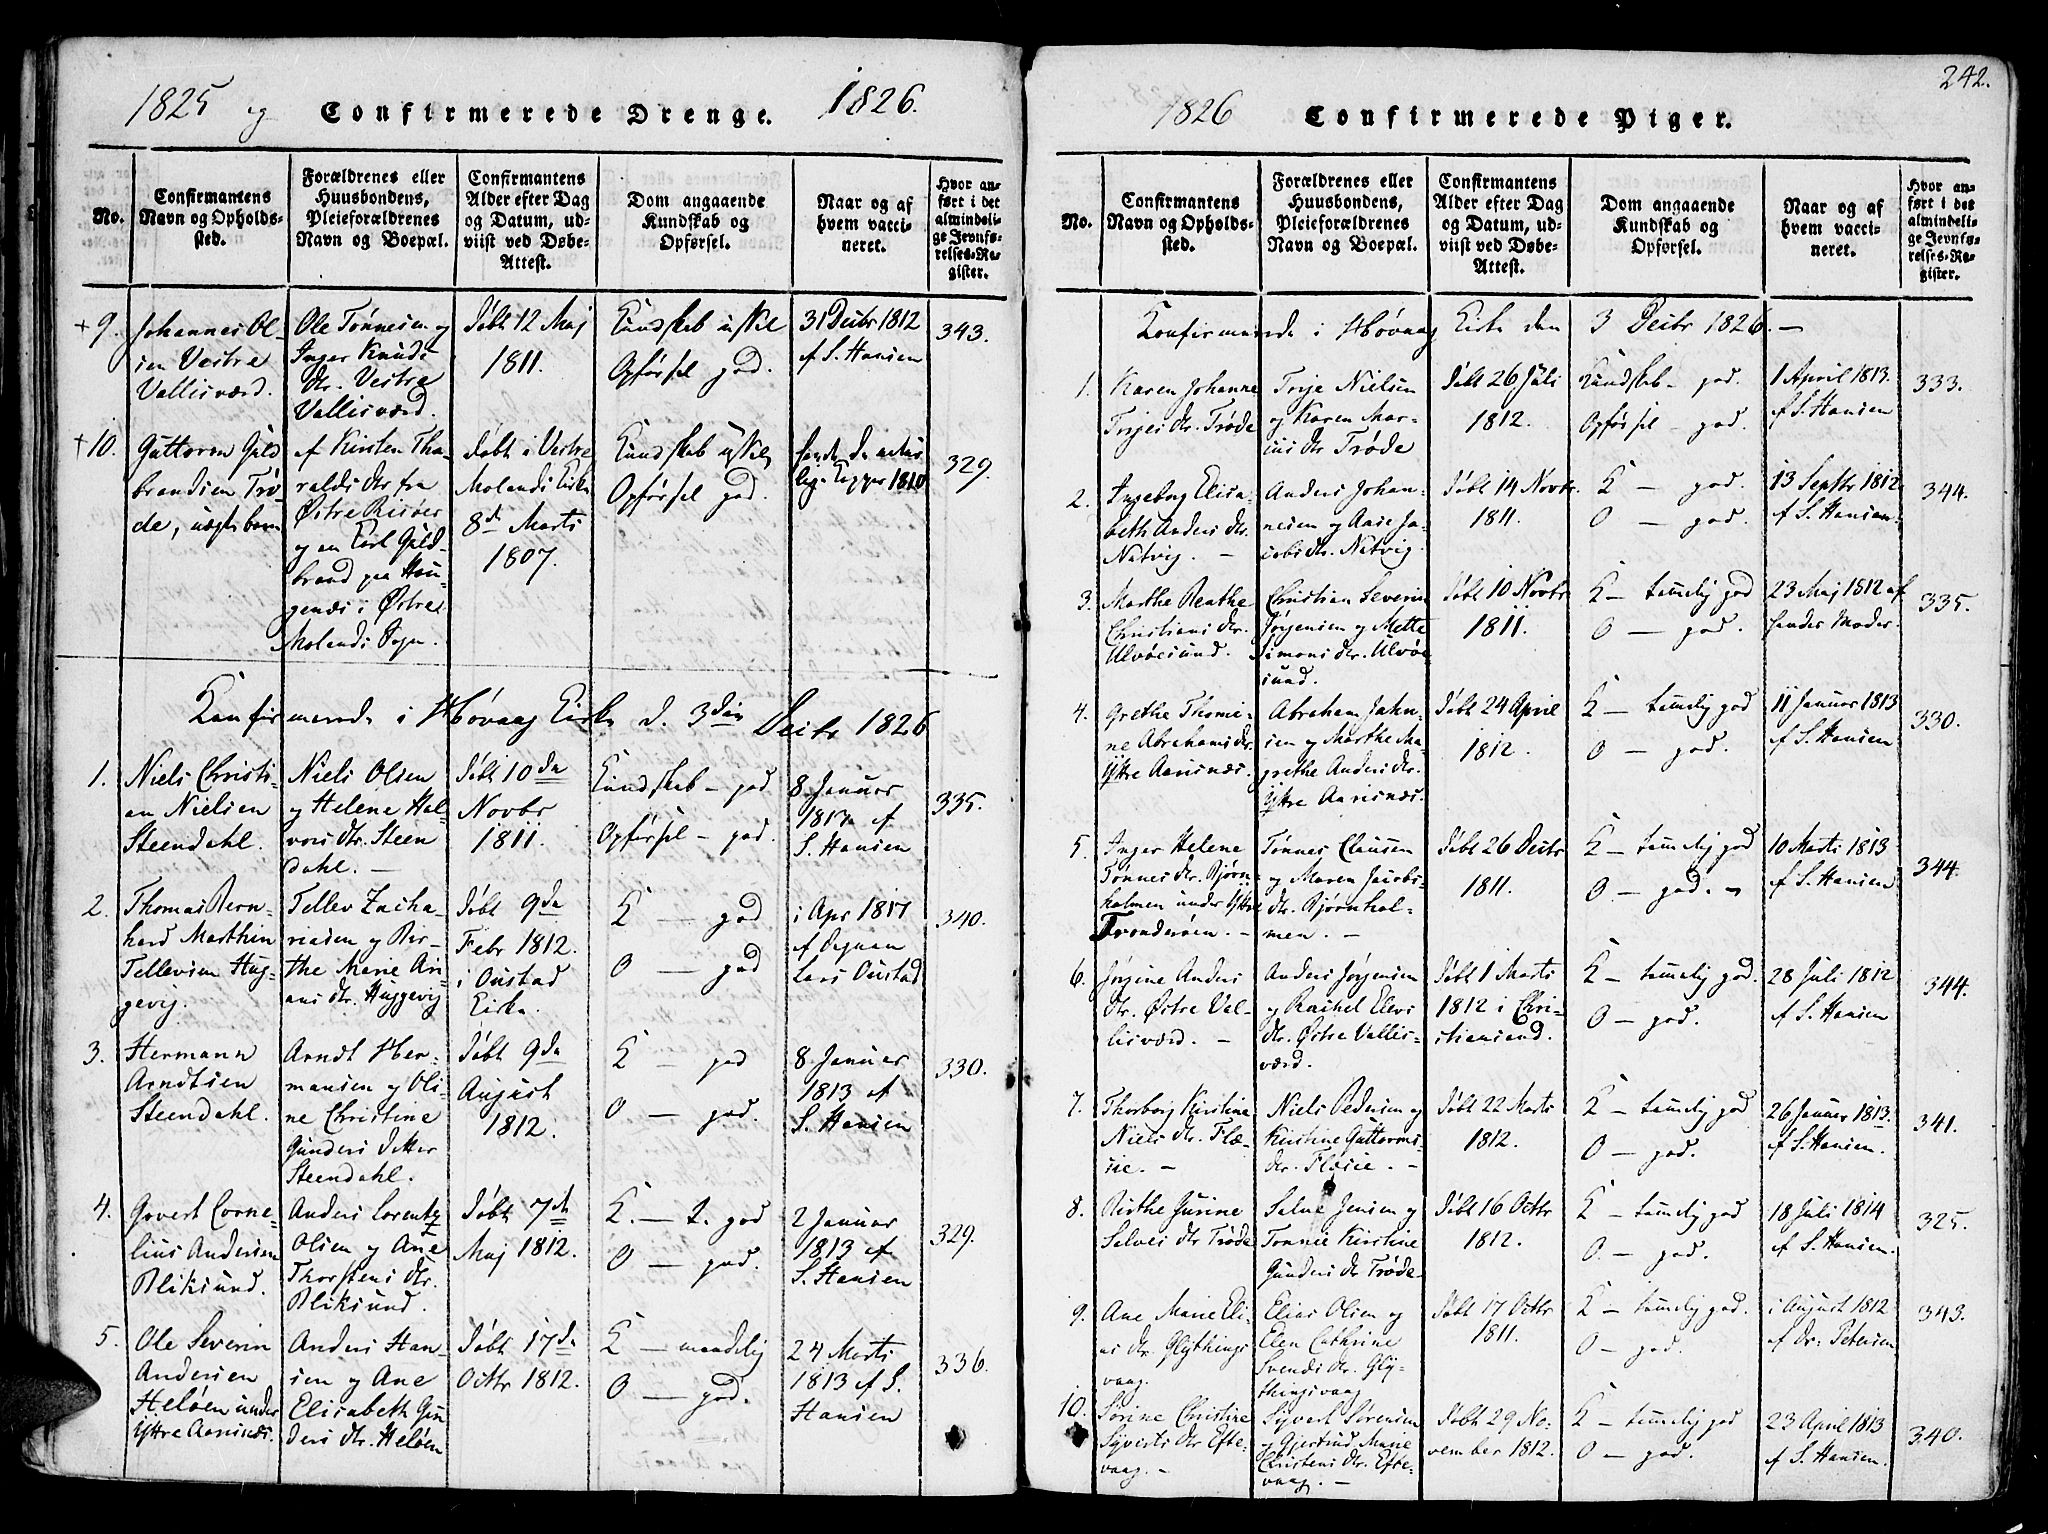 242.
1825 og Confirmerede Drenge. 1826.
No.
Confirmantens
Navn og Opholds-
sted.
Forældrenes eller
Huusbondens,
Pleieforældrenes
Navn og Boepæl.
Confirmantens
Alder efter Dag
og Datum, ud-
viist ved Døbe-
Attest.
Dom angaaende
Kundskab og
Opførsel.
Naar og af
hvem vacci-
neret.
Hvor an-
ført i det
almindeli-
ge Jevnfø-
relses-Re-
gister.
+9.
Johannes Ol-
sen Vestre
Vallisværd.
Ole Tønnesen og
Inger Knuds
dtr. Vestre
Vallisværd.
Døbt 12 Maj
1811.
Kundskab
Opførsel god.
31 Decbr 1812
af S. Hansen
343.
+10.
Guttorm Guld
brandsen Trø-
de, uægte barn
af Kirsten Tha-
ralds dtr fra
Østre Risøer
og en Karl Guld-
brand paa Hau-
genes i Østre
Molands Sogn.
Døbt i Vestre
Molands Kirke
8de Marts
1807.
Kundskab
Opførsel god.
havde de natur
lige Kopper 1810
329.
Konfirmerede i Høvaag Kirke d. 3die Decbr 1826
1.
Niels Christi-
an Nielsen
Steendahl.
Niels Olsen
og Helene Hal-
vors dtr. Steen
dahl. —
Døbt 10de
Novbr
1811.
Kundskab – god
Opførsel – god.
8 Januar
1813 af
S. Hansen
335.
2.
Thomas Bern-
hard Marthin
Tellevsen Hug-
gevig.
Tellev Zacha-
riasen og Bir-
the Marie Ari-
ans dtr. Huggevig
Døbt 9de
Febr 1812.
i Oustad
Kirke.
K — god
O — god
i Apr 1817
af Degnen
Lars Oustad
340.
3.
Hermann
Arndtsen
Steendahl.
Arndt Her-
mansen og Oli-
ne Christine
Gunders Datter
Steendahl.
Døbt 9de
August
1812.
K — god
O — god.
8 Januar
1813 af
S. Hansen
330.
4.
Govert Corne-
lius Andersen
Bliksund.
Anders Lorentz
Olsen og Ane
Thorstens dtr.
Bliksund.
Døbt 7de
Maj 1812.
K. — t. god
O — god.
2 Januar
1813 af
S. Hansen
329.
5.
Ole Severin
Andersen
Heløen under
Yttre Aarisnæs.
Anders Han-
sen og Ane
Elisabeth Gun
ders dtr. Heløen
Døbt 17de
Octbr 1812.
K — maadelig
O — god.
24 Marts
1813 af S.
Hansen
336.
1826 Confirmerede Piger.
No.
Confirmantens
Navn og Opholds-
sted.
Forældrenes eller
Huusbondens,
Pleieforældrenes
Navn og Boepæl.
Confirmantens
Alder efter Dag
og Datum, ud-
viist ved Døbe-
Attest.
Dom angaaende
Kundskab og
Opførsel.
Naar og af
hvem vacci-
neret.
Hvor an-
ført i det
almindeli-
ge Jevnfø-
relses-Re-
gister.
Konfirmerede i Høvaag Kirke den 3 Decbr 1826. —
1.
Karen Johanne
Terjes dtr. Trøde
Terje Nielsen
og Karen Mar-
ius dtr Trøde
Døbt 26 Juli
1812.
Kundskab – god.
Opførsel – god.
1 April 1813.
af S. Hansen
333.
2.
Ingeborg Elisa-
beth Anders dtr.
Natvig. —
Anders Johan-
nesen og Aase Ja-
cobs dtr. Natvig.
Døbt 14 Novbr.
1811.
K — god.
O — god.
13 Septbr 1812
af S. Hansen.
344.
3.
Marthe Benthe
Christians dtr.
Ulvøesund.
Christian Severin
Jørgensen og Mette
Simons dtr. Ulvøe
sund.
Døbt 10 Novbr
1811.
K — temmelig god
O — god.
23 Maj 1812 af
hendes Moder.
335.
4.
Grethe Thomi-
ne Abrahams dtr.
Yttre Aarisnæs.
Abraham Jahn-
sen og Marthe Ma-
grethe Anders dtr.
Yttre Aarisnæs.
Døbt 24 April
1812.
K — temmelig god
O — god.
11 Januar 1813
af S. Hansen
330.
5.
Inger Helene
Tønnes dtr. Bjørn-
holmen under Yttre
Trondsrøen. —
Tønnes Clausen
og Maren Jacobs-
dtr. Bjørnhol-
men. —
Døbt 26 Decbr
1811.
K — temmelig god
O — god. —
10 Marts 1813
af S. Hansen
344.
6.
Jørgine Anders
dtr. Østre Val-
lisværd. —
Anders Jørgensen
og Rachel Elevs
dtr. Østre Vallis-
værd.
Døbt 1 Marts
1812 i Chri-
stiansand.
K — temmelig god.
O — god.
28 Juli 1812
af S. Hansen
344.
7.
Thorborg Kirstine
Niels dtr. Flæ-
sie. —
Niels Pedersen og
Kirstine Guttorms-
dtr. Flæsie. —
Døbt 22 Marts
1812.
K — temmelig god
O — god.
26 Januar 1813.
af S. Hansen.
341.
8.
Birthe Gurine
Salves dtr Trøde
Salve Jensen og
Tonnie Kirstine
Gunders dtr Trøde
Døbt 16 Octbr
1812.
K — temmelig god
O. — god.
18 Juli 1814
af S. Hansen.
325.
9.
Ane Marie Eli-
as dtr. Glythings
vaag.
Elias Olsen og
Elen Cathrine
Svends dtr. Gly-
thingsvaag
Døbt 17 Octbr
1811.
K — temmelig god.
O — god.
i August 1812
af dr. Petersen
343.
10.
Sørine Christine
Syverts dtr Efte-
vaag. —
Syvert Sørensen
og Gjertrud Marie
Christens dtr. Efte-
vaag. —
Døbt 29 No-
vember 1812.
K — temmelig god
O — god.
23 April 1813
af S. Hansen.
340.